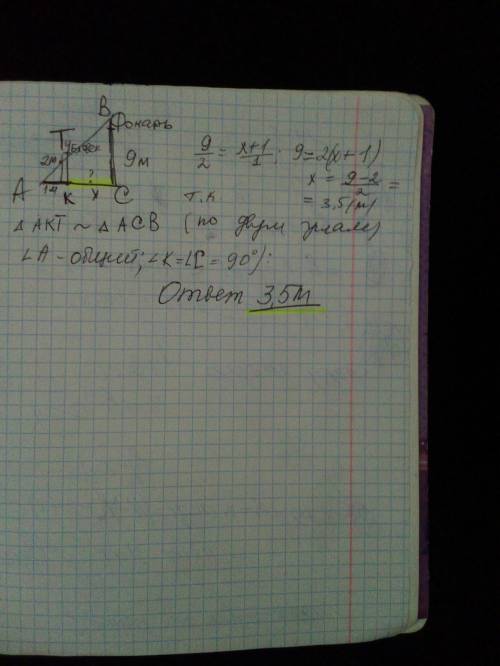 B Фонарь
T
2м
9м
A 1м K x C
?
9/2 = (x+1)/1; 9=2(x+1)
x = (9-2)/2 =
= 3,5(м)
т.к
△AKT ~ △ACB (по двум углам)
∠A - общий; ∠K=∠C = 90°):
Ответ 3,5м